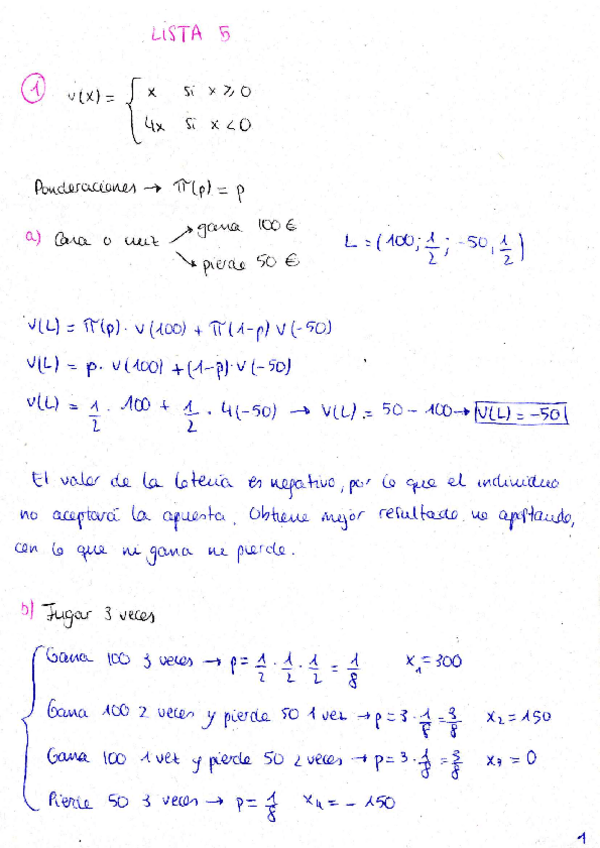 LISTA 5
① v(x) = { x si x ≥ 0
4x si x < 0
Ponderaciones → π(p) = p
a) Cara o cruz → gana 100 €
→ pierde 50 €
L = (100, 1/2 ; -50, 1/2)
V(L) = π(p) · v(100) + π(1-p) v(-50)
V(L) = p · v(100) + (1-p) · v(-50)
V(L) = 1/2 · 100 + 1/2 · 4(-50) → V(L) = 50 - 100 → V(L) = -50
El valor de la lotería es negativo, por lo que el individuo
no aceptará la apuesta. Obtiene mejor resultado no apostando,
con lo que ni gana ni pierde.
b) Jugar 3 veces
Gana 100 3 veces → p = 1/2 · 1/2 · 1/2 = 1/8 x₁ = 300
Gana 100 2 veces y pierde 50 1 vez → p = 3 · 1/8 = 3/8 x₂ = 150
Gana 100 1 vez y pierde 50 2 veces → p = 3 · 1/8 = 3/8 x₃ = 0
Pierde 50 3 veces → p = 1/8 x₄ = -150
1